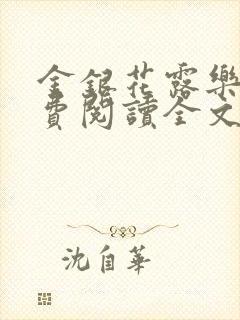 金銀花露樂
費閱讀全文
沈自華